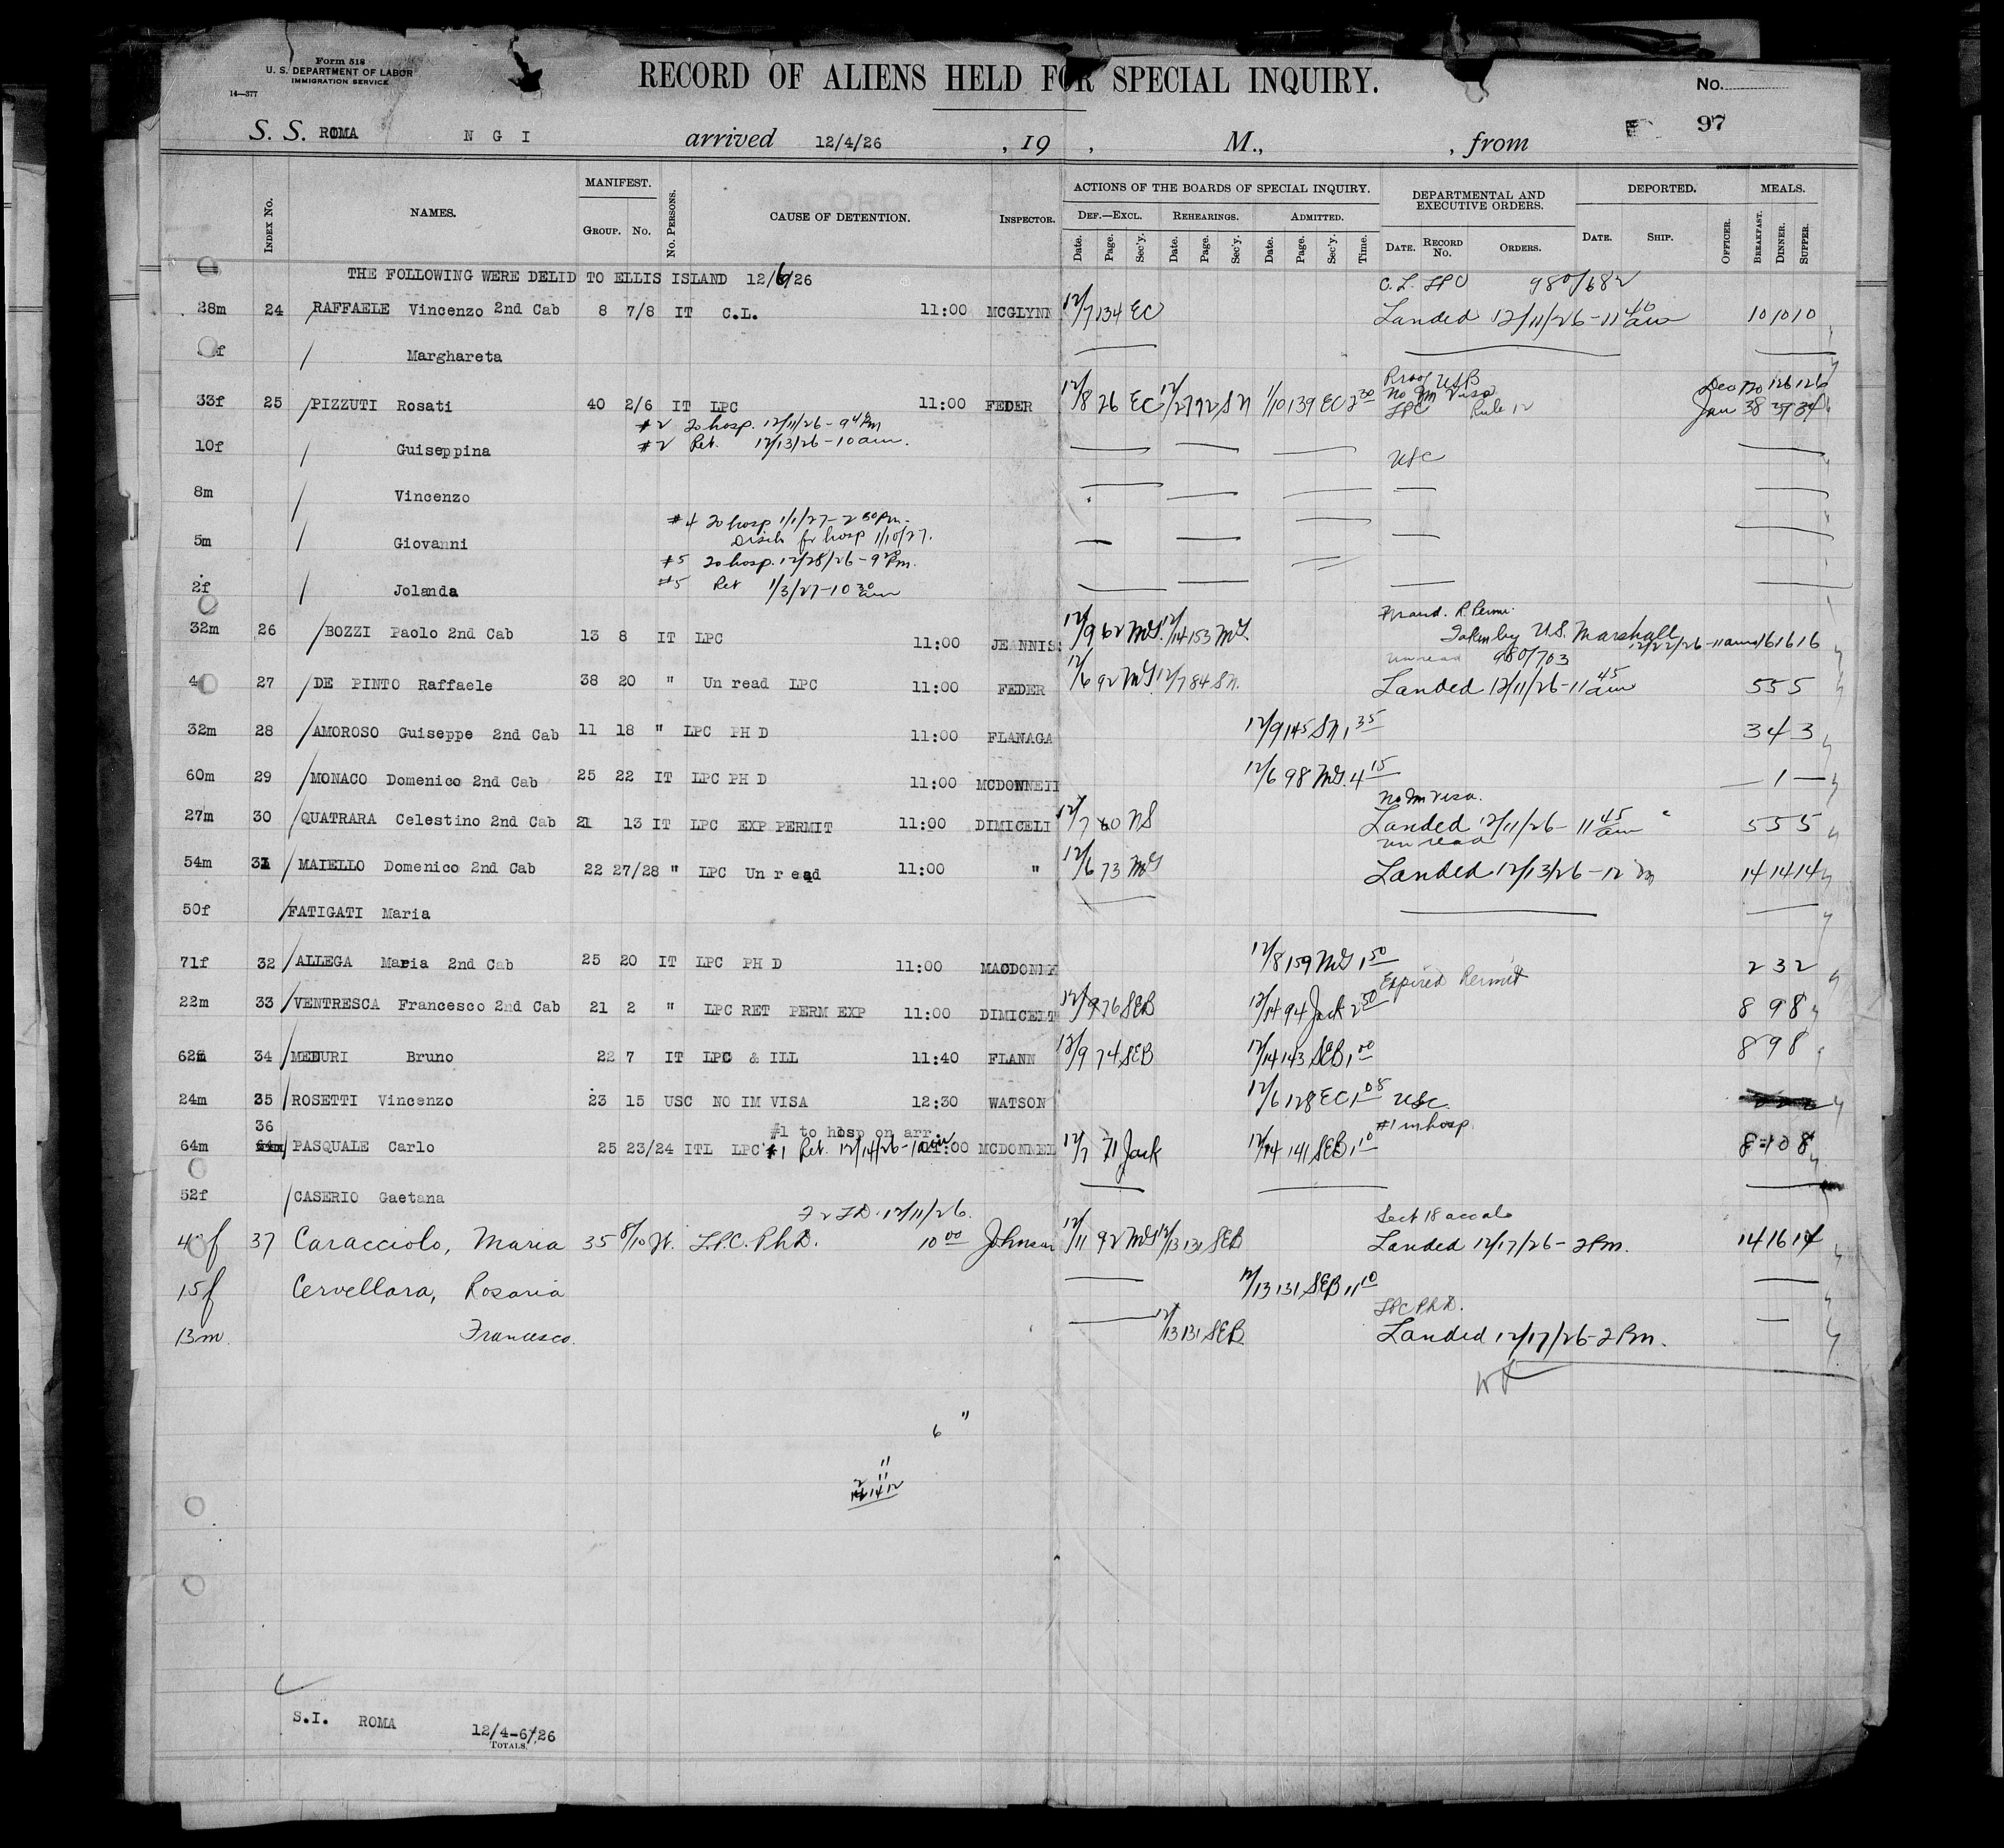 Form 518
U. S. DEPARTMENT OF LABOR
IMMIGRATION SERVICE
14—377
RECORD OF ALIENS HELD FOR SPECIAL INQUIRY.
No.
97
S. S. ROMA N G I arrived 12/4/26 , 19 , M., , from
INDEX No. NAMES. MANIFEST. GROUP. No. No. PERSONS. CAUSE OF DETENTION. INSPECTOR. ACTIONS OF THE BOARDS OF SPECIAL INQUIRY. DEF.—EXCL. REHEARINGS. ADMITTED. DEPARTMENTAL AND EXECUTIVE ORDERS. DEPORTED. MEALS.
Date. Page. Sec'y. Date. Page. Sec'y. Date. Page. Sec'y. Time. DATE. RECORD No. ORDERS. DATE. SHIP. OFFICER. BREAKFAST. DINNER. SUPPER.
THE FOLLOWING WERE DELID TO ELLIS ISLAND 12/6/26
C.L. LPC 980/682
28m 24 /RAFFAELE Vincenzo 2nd Cab 8 7/8 IT C.L. 11:00 MCGLYNN 12/7 134 EC Landed 12/11/26 - 11 40 am 10 10 10
f / Marghareta
Proof USB
No Im Visa
33f 25 /PIZZUTI Rosati 40 2/6 IT LPC 11:00 FEDER 12/8 26 EC 12/27 92 SN 1/10 139 EC 2 30 LPC Rule 12 Dec 120 126 126
Jan 38 39 34
#2 To hosp. 12/11/26 - 9 4 Pm
#2 Ret. 12/13/26 - 10 am.
10f / Guiseppina USC
8m / Vincenzo
#4 To hosp 1/1/27 - 2 30 Pm.
Disch fr hosp 1/10/27.
5m / Giovanni
#5 To hosp. 12/28/26 - 9 Pm.
#5 Ret 1/3/27 - 10 30 am
2f / Jolanda
R. Perm.
32m 26 /BOZZI Paolo 2nd Cab 13 8 IT LPC 11:00 JEANNIS 12/9 62 McG. 12/14 153 McG. Taken by U.S. Marshall
12/22/26 - 11 am 16 16 16
Unread 980/703
27 /DE PINTO Raffaele 38 20 " Un read LPC 11:00 FEDER 12/6 92 McG 12/7 84 SN. Landed 12/11/26 - 11 45 am 5 5 5
32m 28 /AMOROSO Guiseppe 2nd Cab 11 18 " LPC PH D 11:00 FLANAGA 12/9 145 SN 1 35 3 4 3
60m 29 /MONACO Domenico 2nd Cab 25 22 IT LPC PH D 11:00 MCDONNEII 12/6 98 McG. 4 15 — 1 —
No Im Visa.
27m 30 /QUATRARA Celestino 2nd Cab 21 13 IT LPC EXP PERMIT 11:00 DIMICELI 12/7 60 NS Landed 12/11/26 - 11 45 am 5 5 5
Unread
54m 31 /MAIELLO Domenico 2nd Cab 22 27/28 " LPC Un read 11:00 " 12/6 73 McG Landed 12/13/26 - 12 14 14 14
50f /FATIGATI Maria
71f 32 /ALLEGA Maria 2nd Cab 25 20 IT LPC PH D 11:00 MACDONNE 12/8 159 McG 1 50 2 3 2
Expired Permit
22m 33 /VENTRESCA Francesco 2nd Cab 21 2 " LPC RET PERM EXP 11:00 DIMICELT 12/9 76 SEB 12/14 94 Jack 2 50 8 9 8
62m 34 /MEDURI Bruno 22 7 IT LPC & ILL 11:40 FLANN 12/9 74 SEB 12/14 143 SEB 1 00 8 9 8
24m 35 /ROSETTI Vincenzo 23 15 USC NO IM VISA 12:30 WATSON 12/6 128 EC 1 08 USC.
36 #1 to hosp on arr. #1 in hosp
64m /PASQUALE Carlo 25 23/24 ITL LPC #1 Ret. 12/14/26 - 10 am 11:00 MCDONNEL 12/7 71 Jack 12/14 141 SEB 1 10 8 10 8
52f /CASERIO Gaetana
12/11/26. Sect 18
f 37 Caracciolo, Maria 35 8/10 It. L.P.C. Ph.D. 10 00 Johnson 12/11 92 McG 12/13 131 SEB Landed 12/17/26 - 2 Pm. 14 16 14
15f Cervellara, Rosaria 12/13 131 SEB 11 10
LPC PhD.
13m. Francesco. 12/13 131 SEB Landed 12/17/26 - 2 Pm.
6 "
11
11
14 12
S.I. ROMA 12/4-6/26
TOTALS.